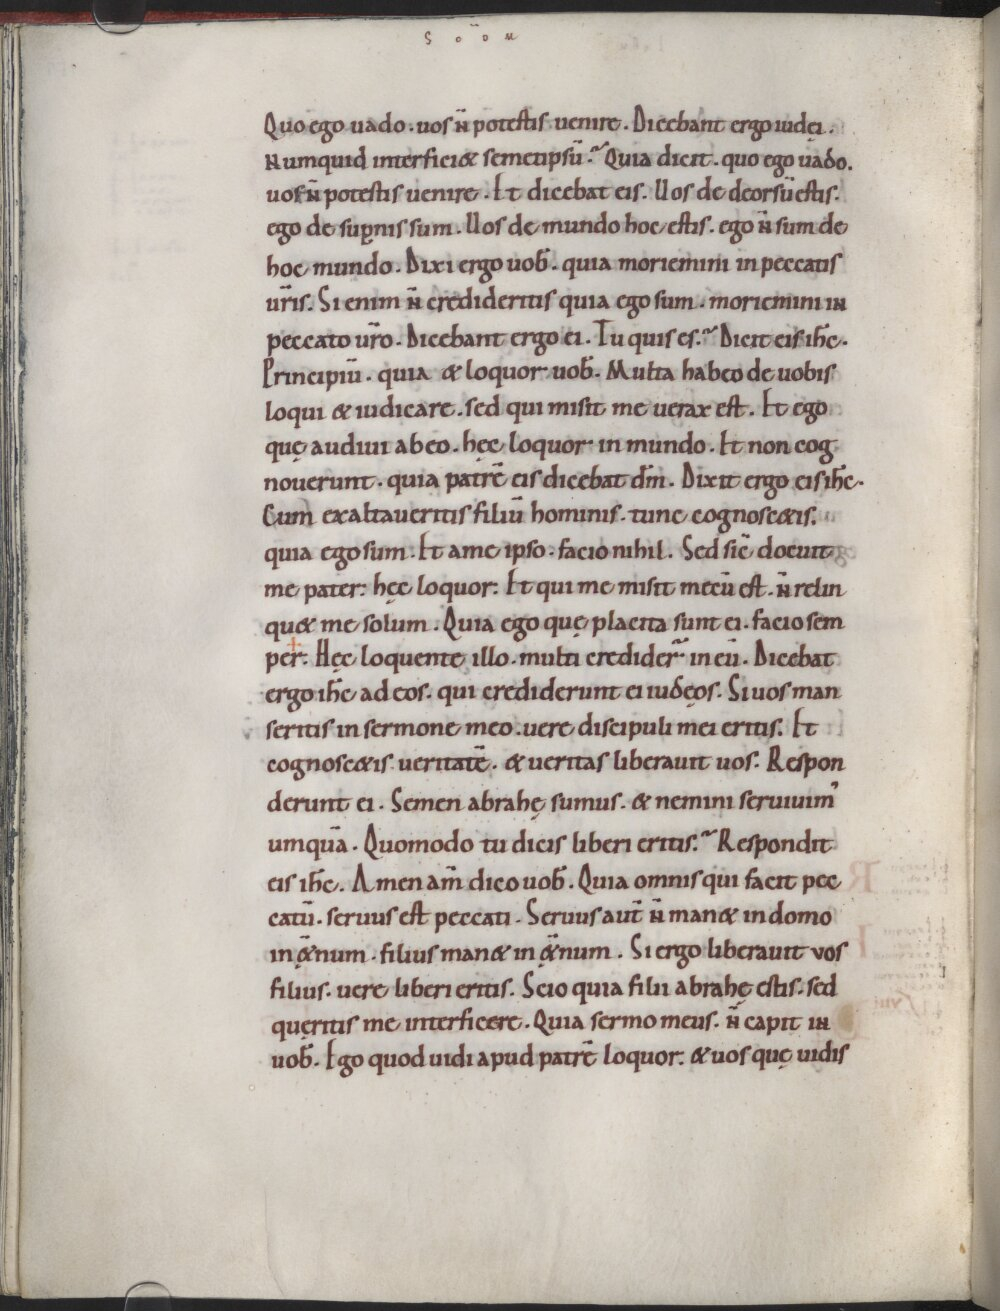 S o o M
Quo ego uado . uos n̄ potestis uenire . Dicebant ergo iudei .
Numquid interfici& semetipsū . Quia dicit . quo ego uado .
uos n̄ potestis uenire . Et dicebat eis . Uos de deorsū estis .
ego de suꝑnis sum . Uos de mundo hoc estis . ego n̄ sum de
hoc mundo . Dixi ergo uob̄ . quia moriemini in peccatis
ur̄is . Si enim n̄ credideritis quia ego sum . moriemini in
peccato ur̄o . Dicebant ergo ei . Tu quis es . Dicit eis ih̄c .
Principiū . quia & loquor uob̄ . Multa habeo de uobis
loqui & iudicare . sed qui misit me uerax est . Et ego
quę audiui ab eo . hęc loquor in mundo . Et non cog
nouerunt . quia patrē eis dicebat dm̄ . Dixit ergo eis ih̄c .
Cum exaltaueritis filiū hominis . tunc cognosc&is .
quia ego sum . Et a me ipso . facio nihil . Sed sic̄ docuit
me pater : hęc loquor : Et qui me misit mecū est . n̄ relin
qu& me solum . Quia ego quę placita sunt ei . facio sem
per : Hęc loquente illo . multi credider̄ in eū . Dicebat
ergo ih̄c ad eos . qui crediderunt ei iudęos . Si uos man
seritis in sermone meo . uere discipuli mei eritis . Et
cognosc&is ueritatē . & ueritas liberauit uos : Respon
derunt ei . Semen abrahę sumus . & nemini seruiuim᾽
umquā . Quomodo tu dicis liberi eritis . Respondit
eis ih̄c . Amen am̄ dico uob̄ . Quia omnis qui facit pec
catū . seruus est peccati . Seruus aut̄ n̄ man& in domo
in &̨̄num . filius man& in &̨̄num . Si ergo liberauit vos
filius . uere liberi eritis . Scio quia filii abrahę estis . sed
quęritis me interficere . Quia sermo meus . n̄ capit in
uob̄ . Ego quod uidi apud patrē loquor : & uos quę uidis